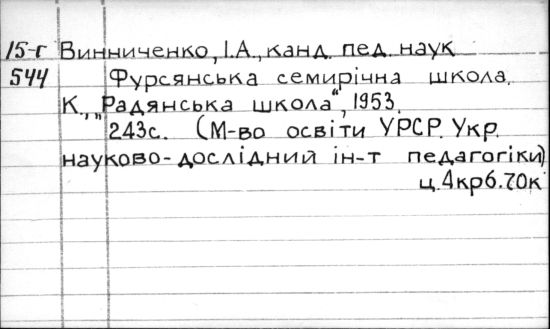 15-г Винниченко, І.А., канд. пед. наук
544 Фурсянська семирічна школа.
К., „Радянська школа", 1953.
243с. (М-во освіти УРСР. Укр.
науково-дослідний ін-т педагогіки)
ц. 4крб. 70к